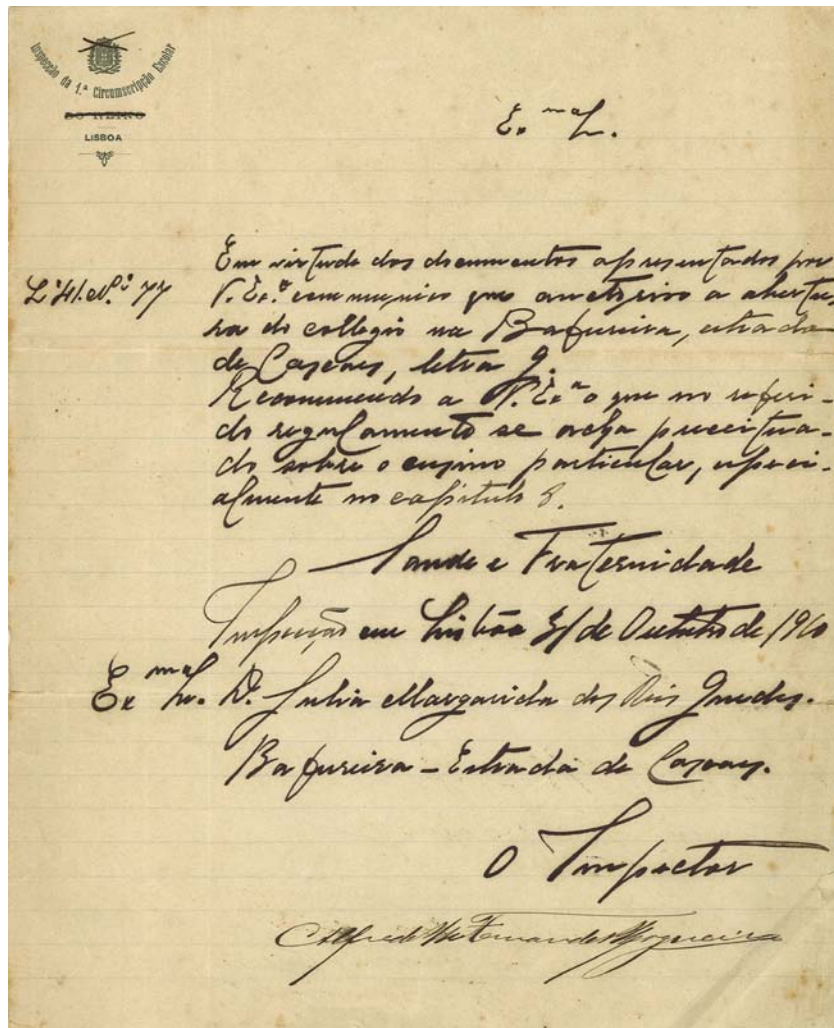 Inspecção da 1.ª Circumscripção Escolar
DO REINO
LISBOA
Ex.ma Sr.
L.º 41. N.º 77
Em virtude dos documentos apresentados por
V. Ex.ª communico que auctoriso a abertu-
ra do collegio na Bafureira, estrada
de Cascaes, letra G.
Recommendo a V. Ex.ª o que no referi-
do regulamento se acha preceitua-
do sobre o ensino particular, especi-
almente no capitulo 8.
Saude e Fraternidade
Inspecção em Lisbôa 31 de Outubro de 1910
Ex.ma Sr. D. Julia Margarida dos Reis Guedes.
Bafureira – Estrada de Cascaes.
O Inspector
Fernandes Nogueira